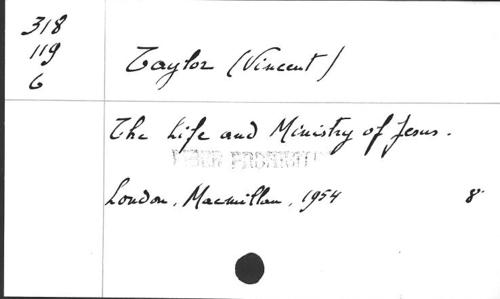 318
119
6
Taylor (Vincent)
The Life and Ministry of Jesus.
London, Macmillan, 1954 8°